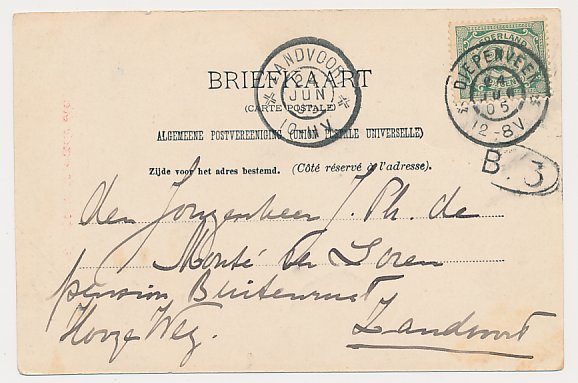 NEDERLAND
DIEPENVEEN
24 JUN 05
12-8V
ZANDVOORT
24 JUN
10-11V
BRIEFKAART
(CARTE POSTALE)
ALGEMEENE POSTVEREENIGING (UNION POSTALE UNIVERSELLE)
Zijde voor het adres bestemd. (Côté réservé à l'adresse).
B 3
den Jongenheer J. Ph. de
Monté ver Loren
pension Buitenrust
Hooge Weg. Zandvoort